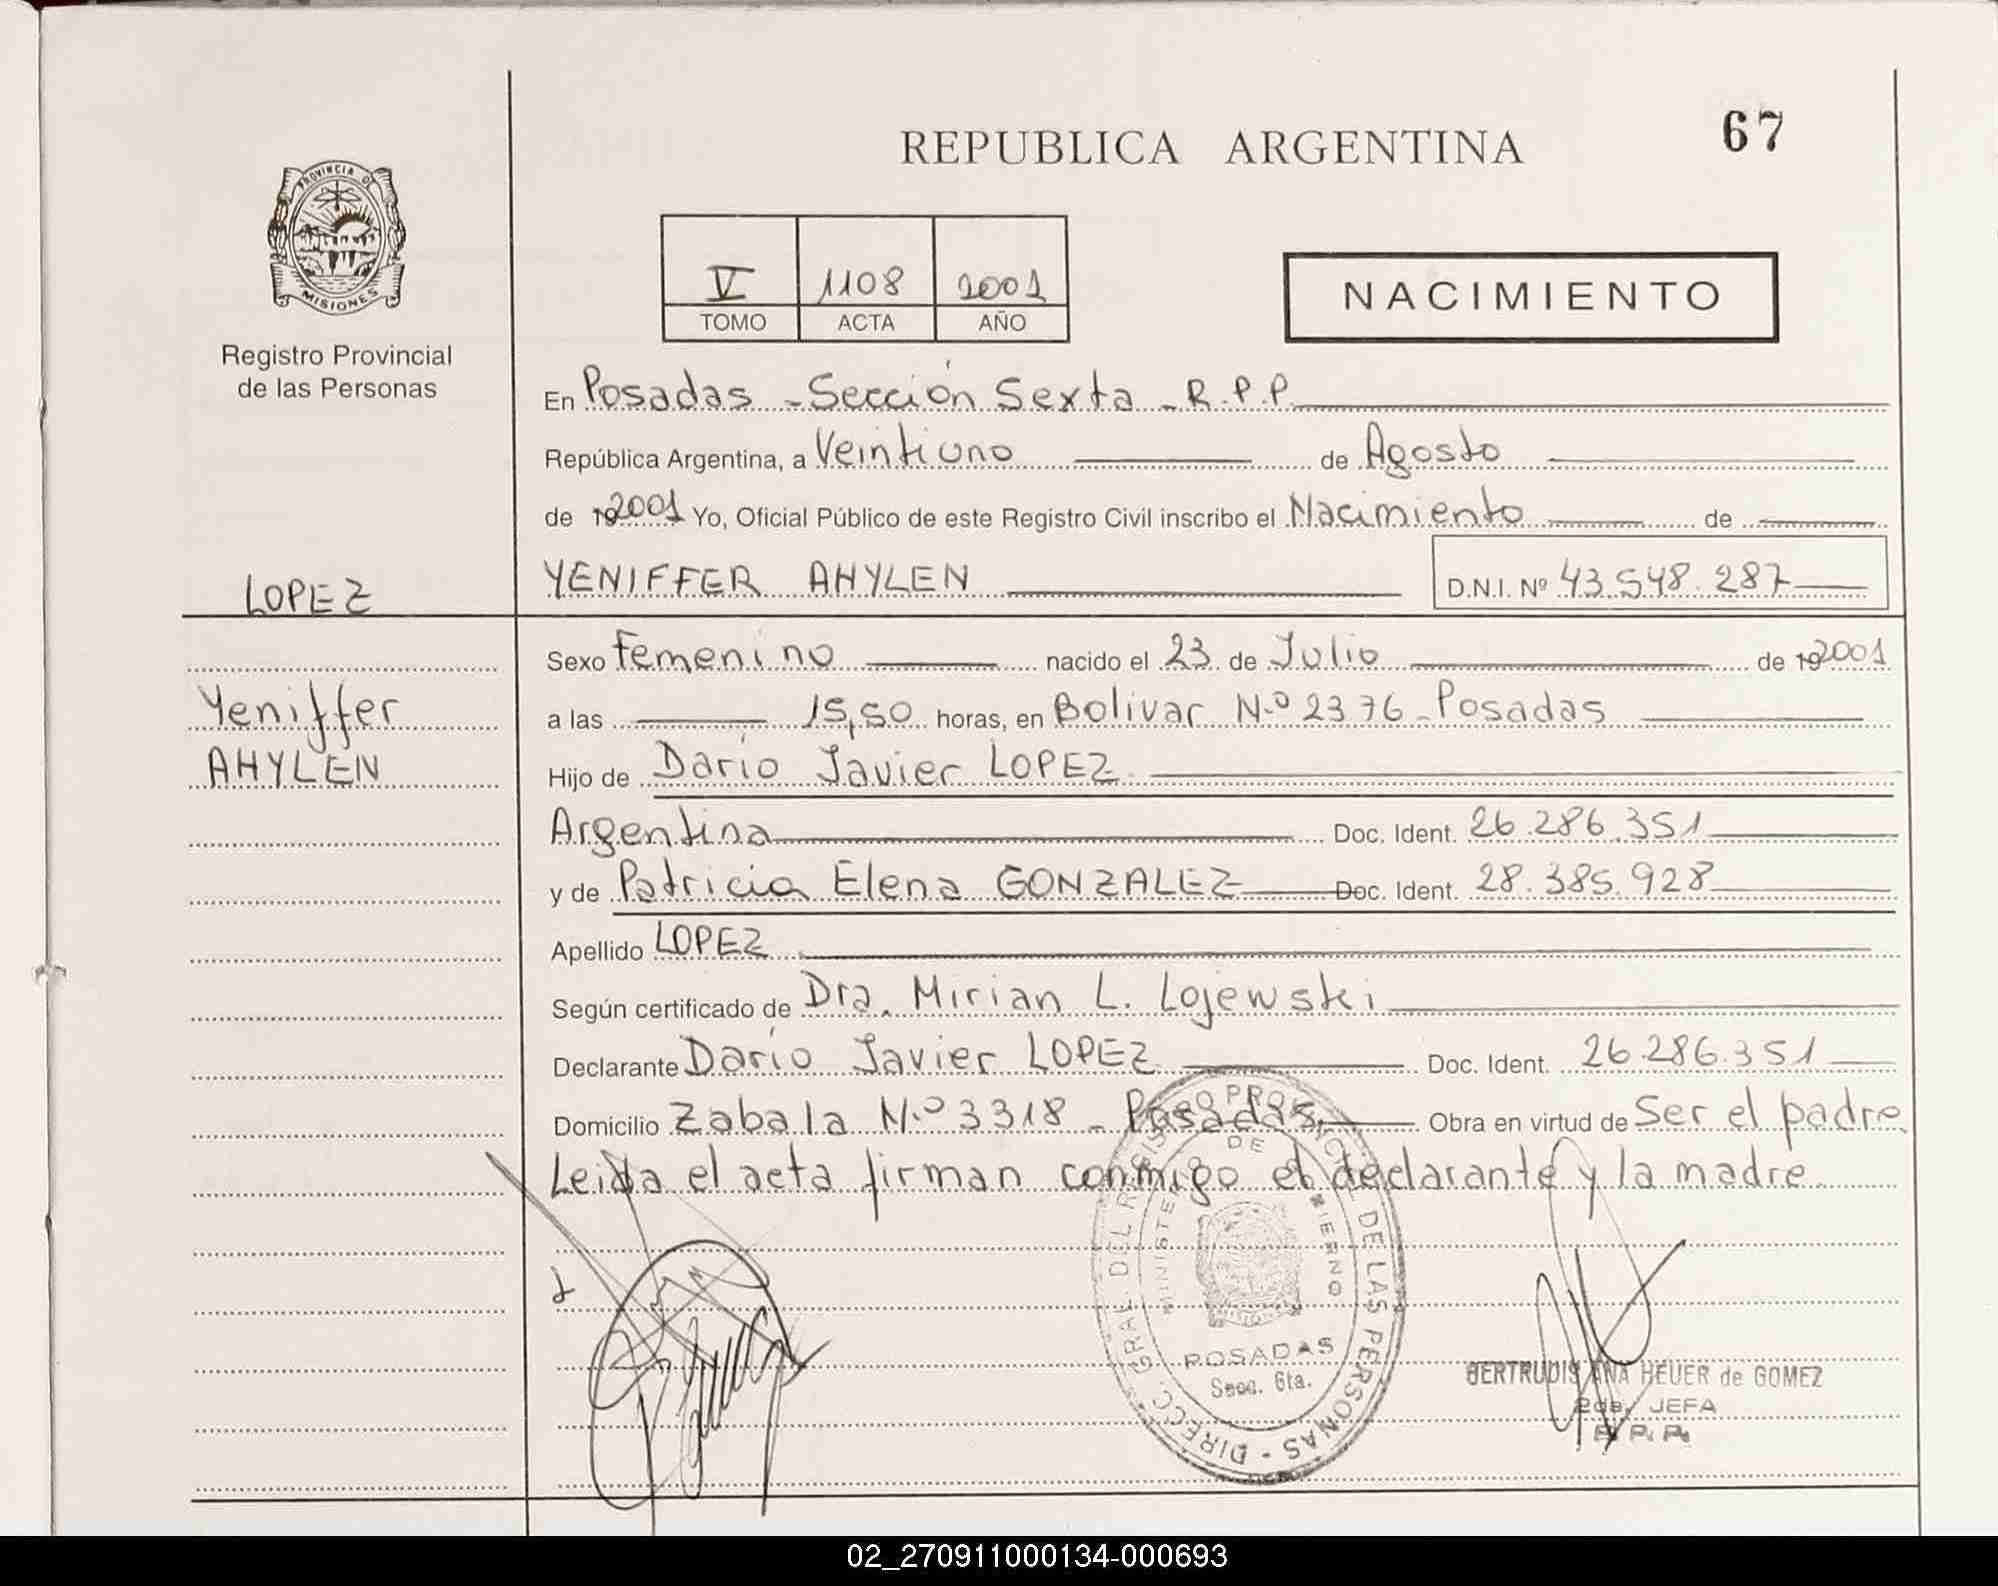 REPUBLICA ARGENTINA
67
PROVINCIA DE
MISIONES
Registro Provincial
de las Personas
V 1108 2001
TOMO ACTA AÑO
NACIMIENTO
En Posadas - Sección Sexta - R.P.P.
República Argentina, a Veintiuno de Agosto
de 192001 Yo, Oficial Público de este Registro Civil inscribo el Nacimiento de
LOPEZ
YENIFFER AHYLEN
D.N.I. Nº 43.548.287
Yeniffer
AHYLEN
Sexo Femenino nacido el 23 de Julio de 192001
a las 15,50 horas, en Bolivar N.º 2376 - Posadas
Hijo de Darío Javier LOPEZ
Argentina Doc. Ident. 26.286.351
y de Patricia Elena GONZALEZ Doc. Ident. 28.385.928
Apellido LOPEZ
Según certificado de Dra. Mirian L. Lojewski
Declarante Darío Javier LOPEZ Doc. Ident. 26.286.351
Domicilio Zabala N.º 3318 - Posadas. Obra en virtud de Ser el padre.
Leida el acta firman conmigo el declarante y la madre
DIRECC. GRAL. DEL REGISTRO PROVINCIAL DE LAS PERSONAS -
MINISTERIO DE GOBIERNO
POSADAS
Secc. 6ta.
GERTRUDIS ANA HEUER de GOMEZ
2da. JEFA
R. P. P.
02_270911000134-000693